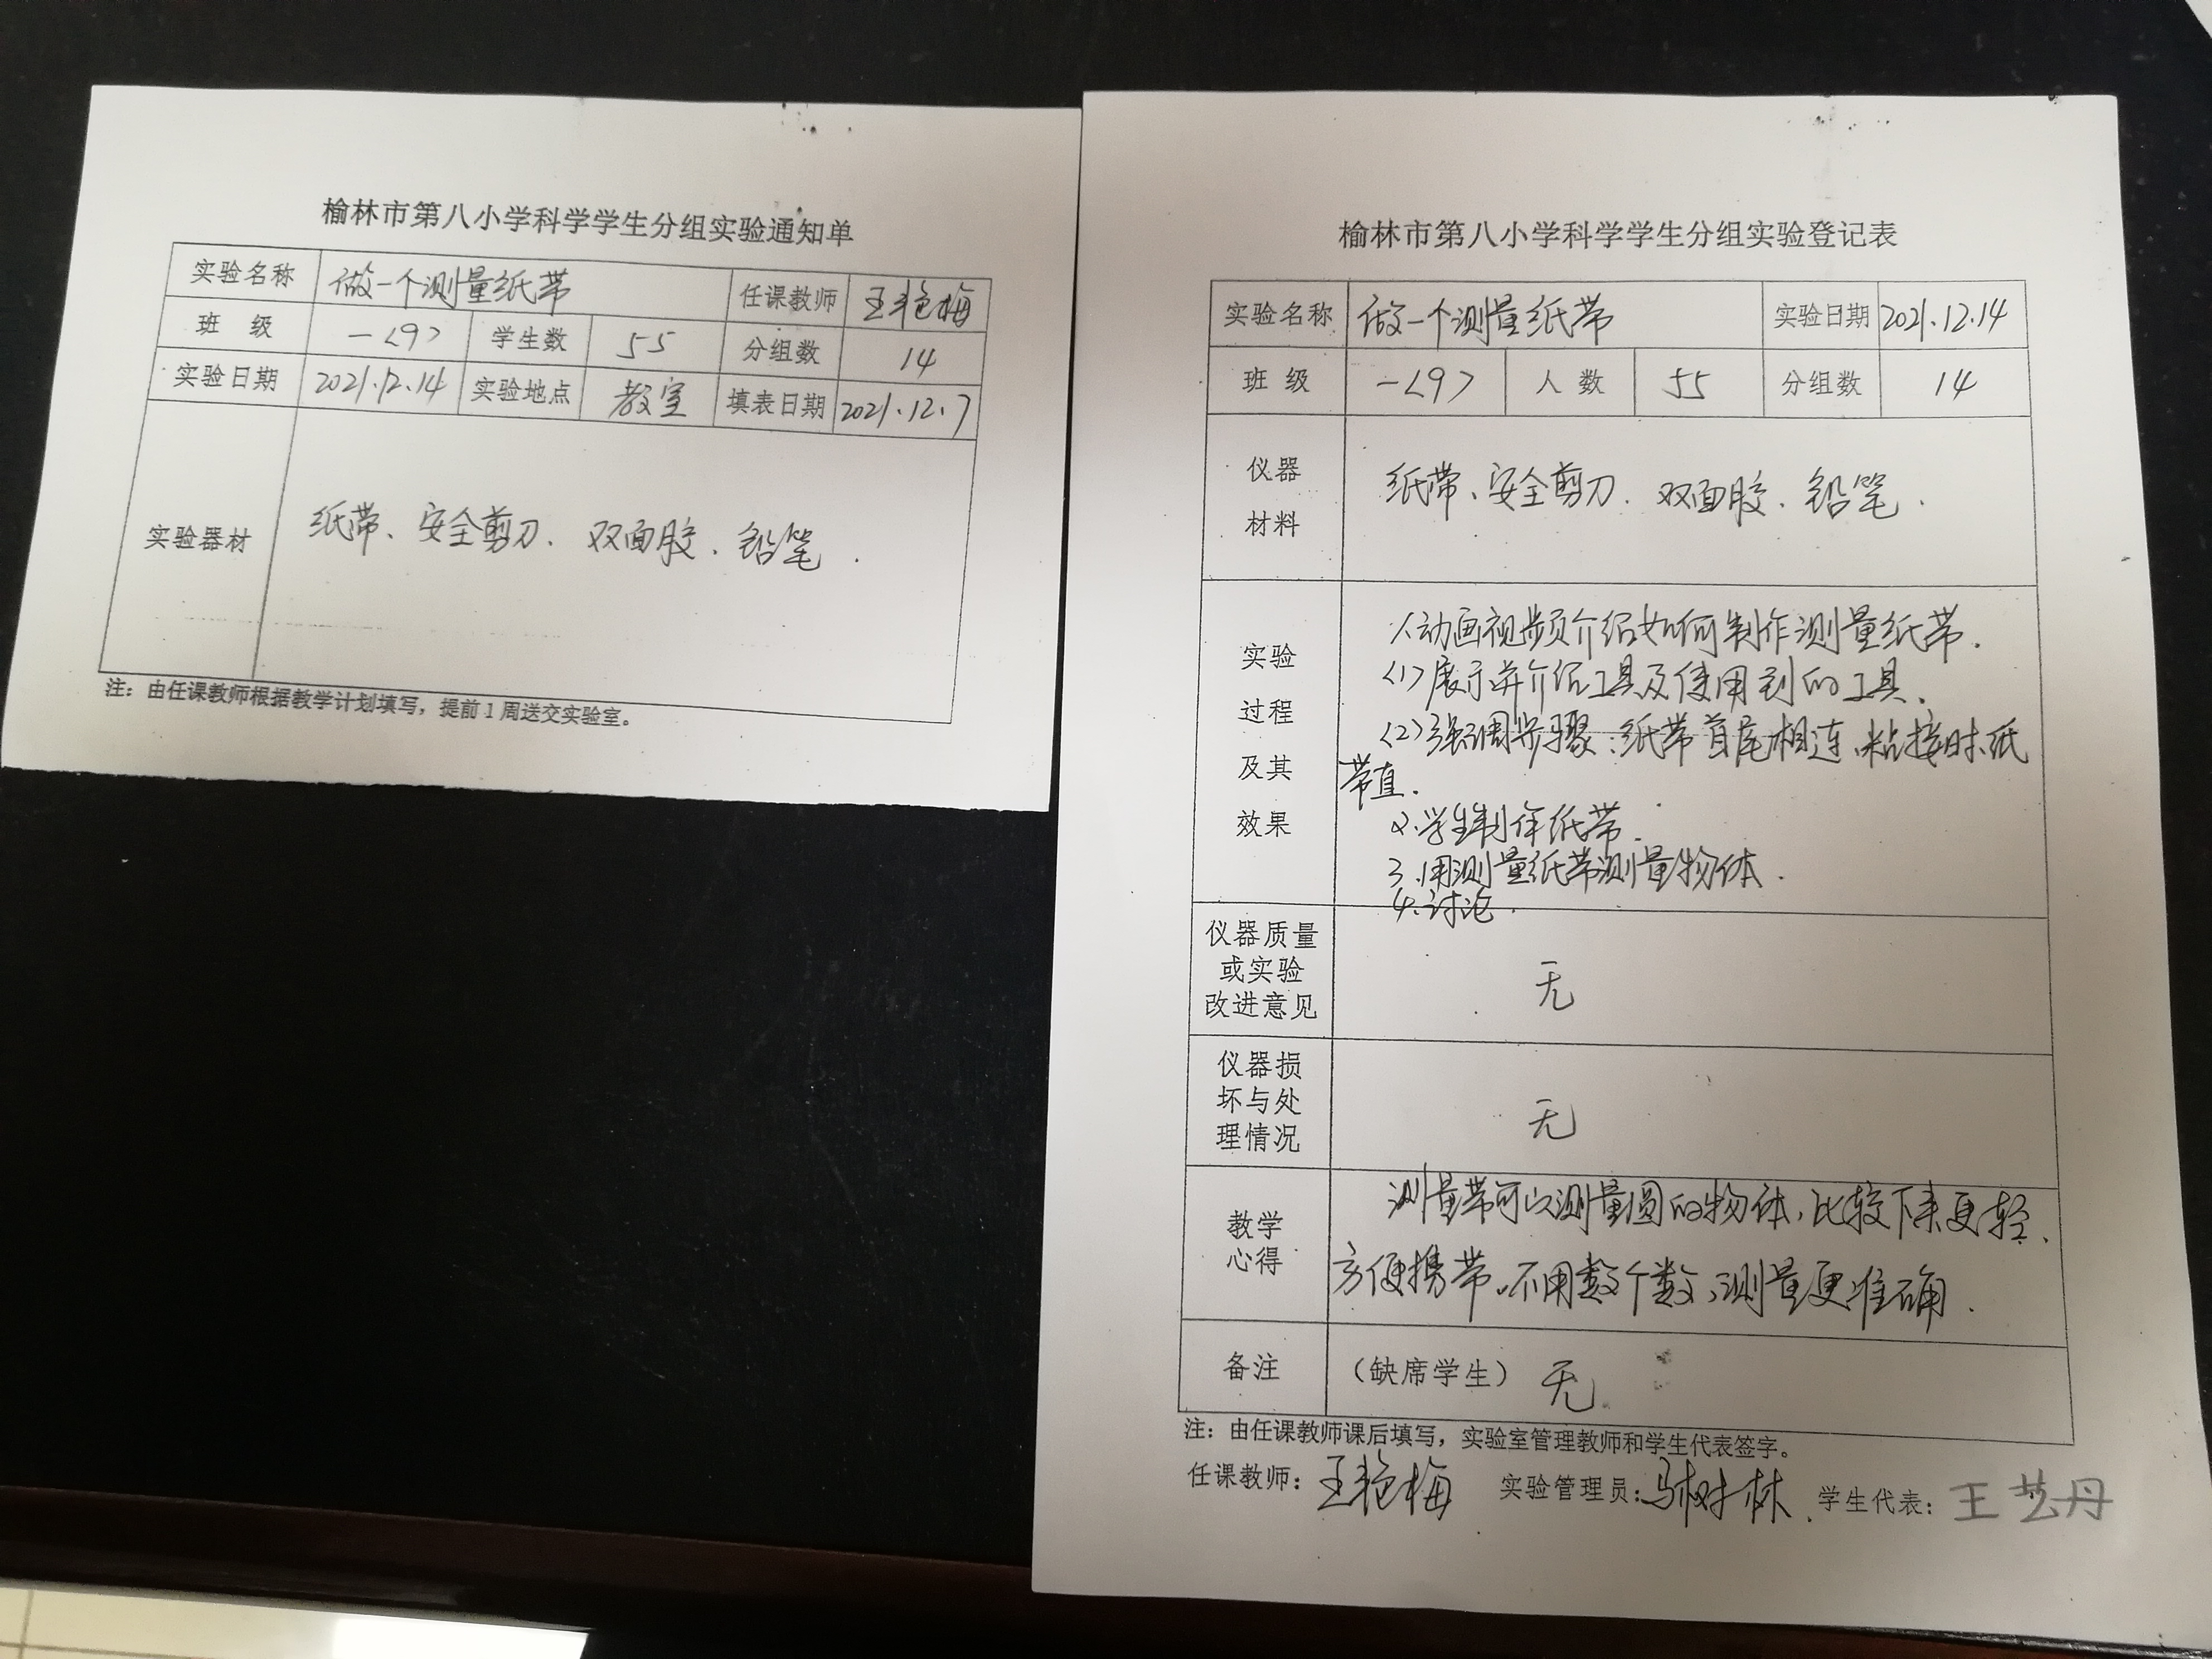 榆林市第八小学科学学生分组实验通知单
实验名称 做一个测量纸带 任课教师 王艳梅
班 级 一<9> 学生数 55 分组数 14
实验日期 2021.12.14 实验地点 教室 填表日期 2021.12.7
实验器材 纸带、安全剪刀、双面胶、铅笔.
注：由任课教师根据教学计划填写，提前1周送交实验室。
榆林市第八小学科学学生分组实验登记表
实验名称 做一个测量纸带 实验日期 2021.12.14
班 级 一<9> 人 数 55 分组数 14
仪器
材料
纸带、安全剪刀、双面胶、铅笔.
实验
过程
及其
效果
1.动画视频介绍如何制作测量纸带.
<1>展示并介绍工具及使用到的工具.
<2>强调步骤:纸带首尾相连,粘接时,纸
带直.
2.学生制作纸带.
3.用测量纸带测量物体.
4.讨论.
仪器质量
或实验
改进意见
无
仪器损
坏与处
理情况
无
教学
心得
测量带可以测量圆的物体,比较下来更轻、
方便携带。不用数个数,测量更准确.
备注 （缺席学生） 无
注：由任课教师课后填写，实验室管理教师和学生代表签字。
任课教师：王艳梅 实验管理员：马树林 学生代表：王艺丹